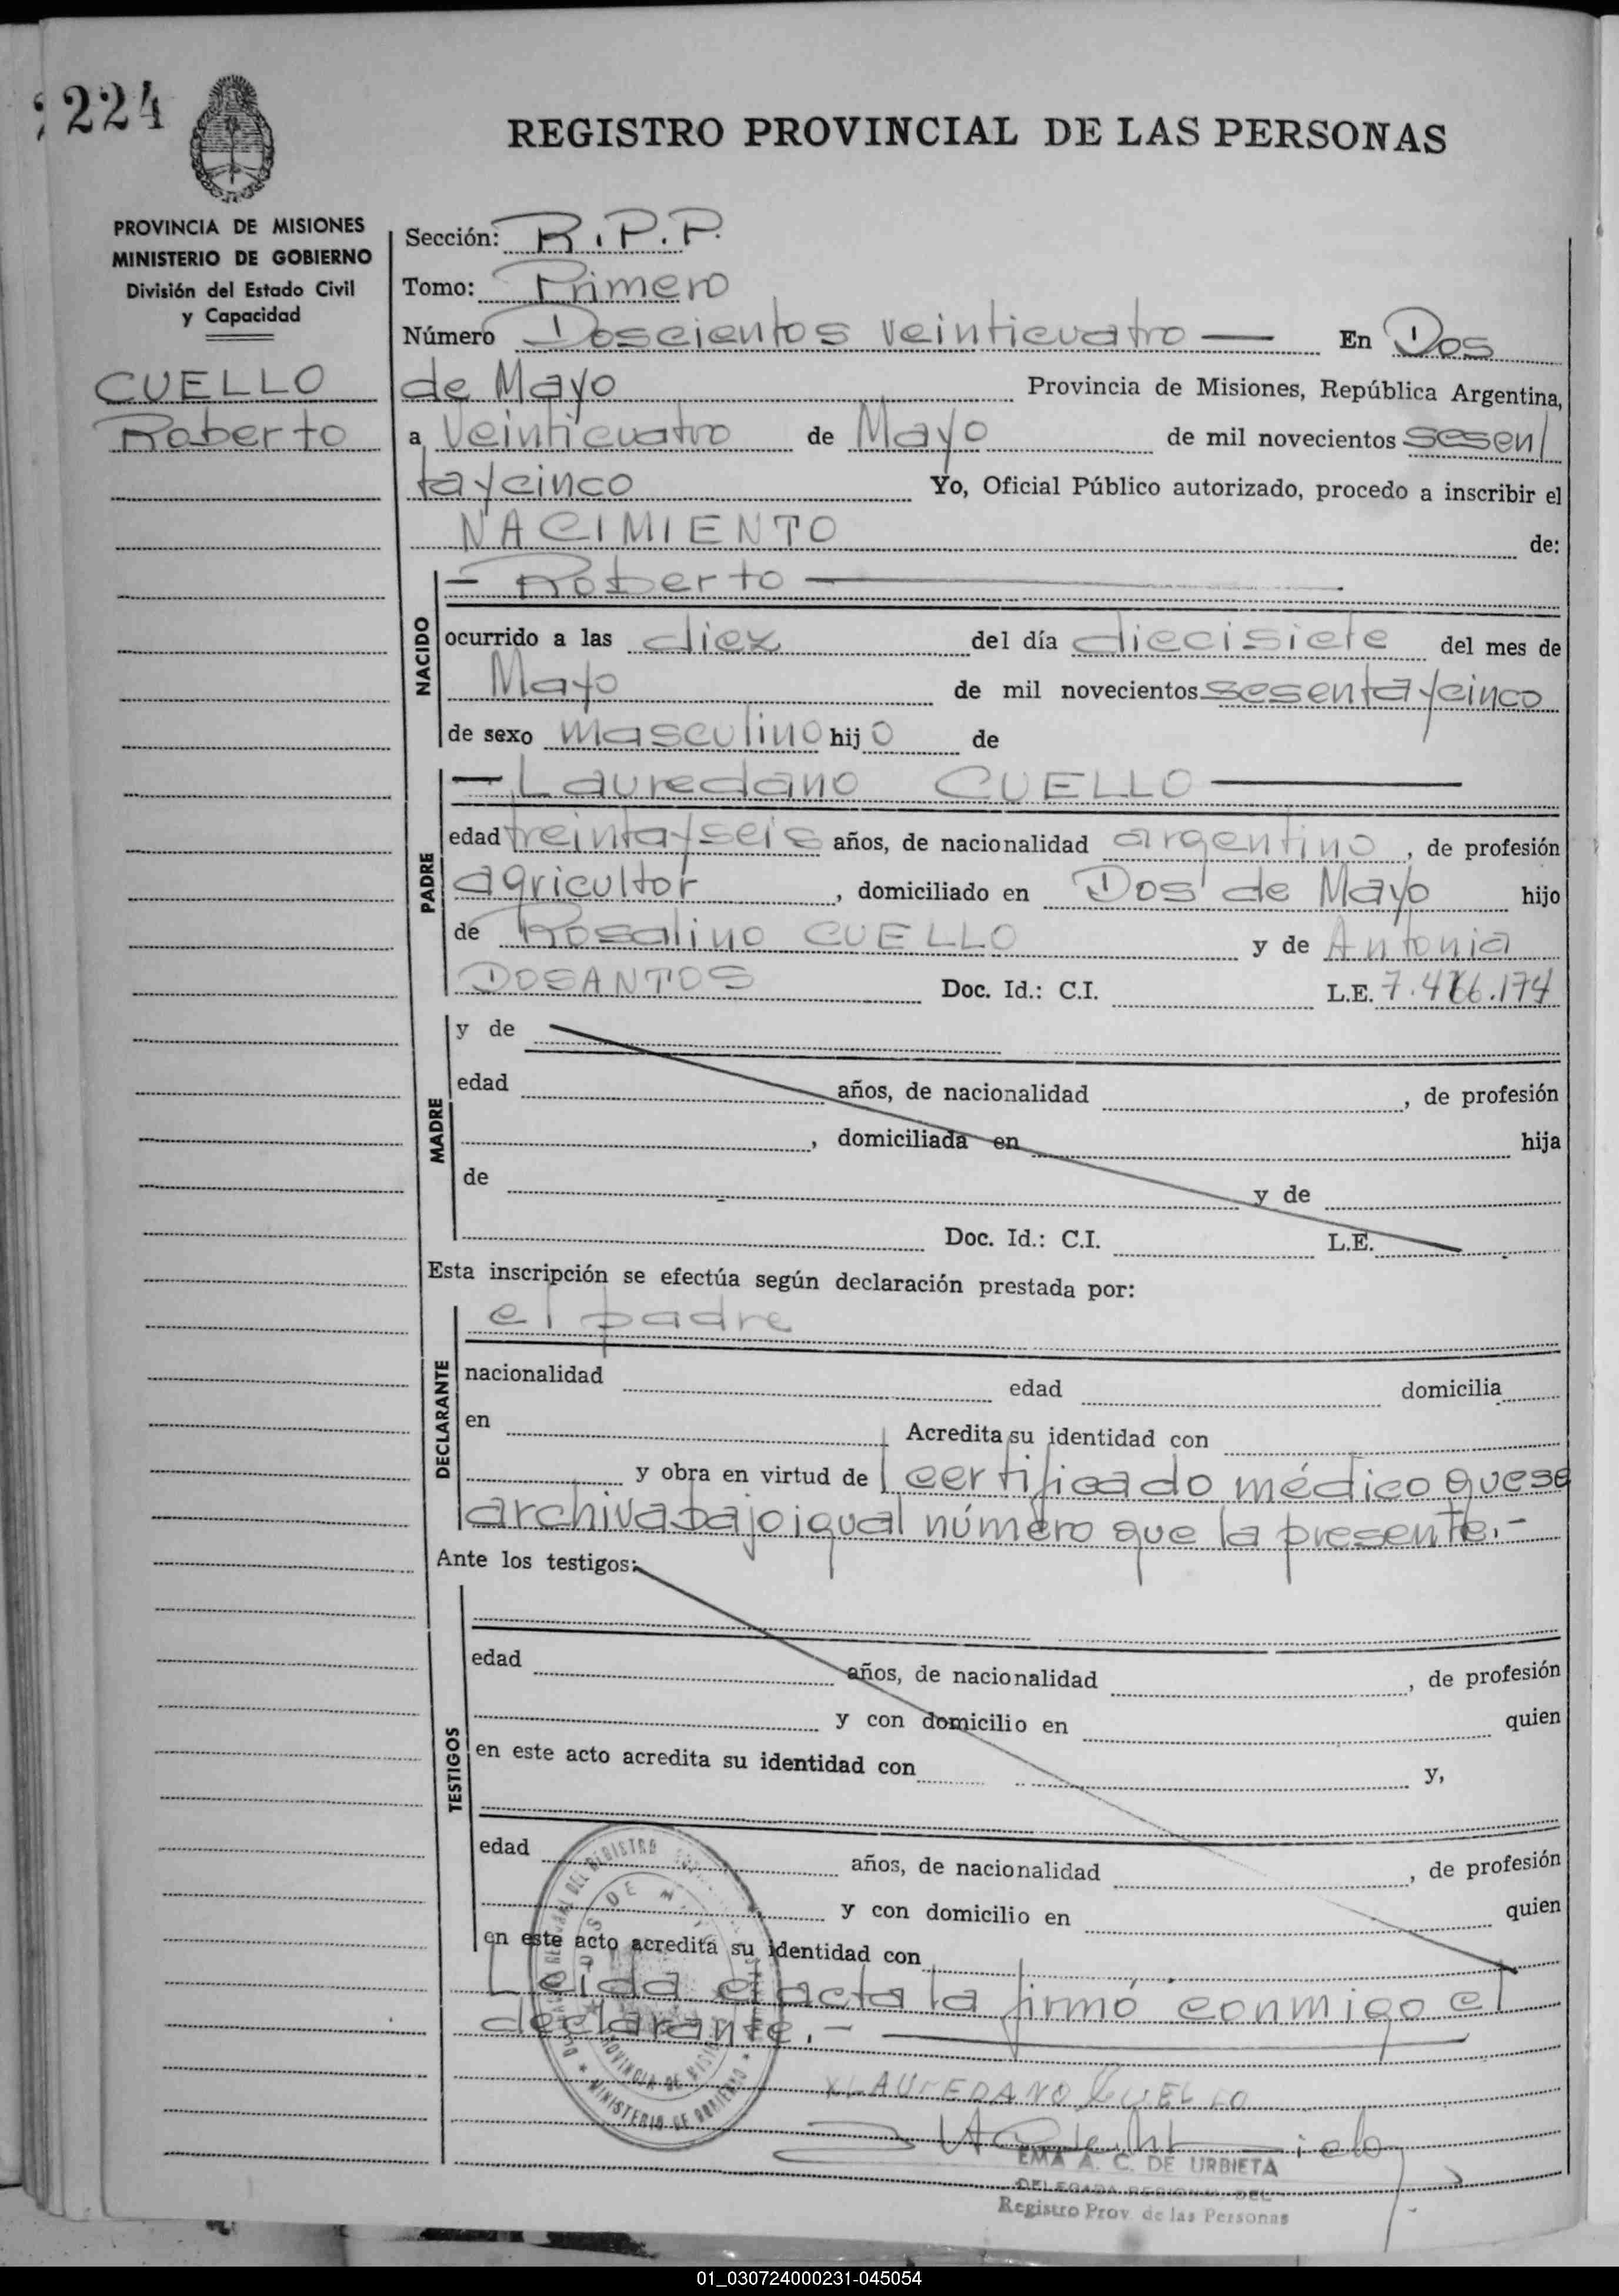 224
REGISTRO PROVINCIAL DE LAS PERSONAS
PROVINCIA DE MISIONES
MINISTERIO DE GOBIERNO
División del Estado Civil
y Capacidad
CUELLO
Roberto
Sección: R.P.P.
Tomo: Primero
Número Doscientos veinticuatro — En Dos
de Mayo Provincia de Misiones, República Argentina,
a Veinticuatro de Mayo de mil novecientos sesen
taycinco Yo, Oficial Público autorizado, procedo a inscribir el
NACIMIENTO de:
NACIDO
— Roberto —
ocurrido a las diez del día diecisiete del mes de
Mayo de mil novecientos sesentaycinco
de sexo masculino hijo de
PADRE
— Lauredano CUELLO —
edad treintayseis años, de nacionalidad argentino, de profesión
agricultor, domiciliado en Dos de Mayo hijo
de Rosalino CUELLO y de Antonia
DOSANTOS Doc. Id.: C.I. L.E.
MADRE
y de
edad años, de nacionalidad , de profesión
, domiciliada en hija
de y de
Doc. Id.: C.I. L.E.
Esta inscripción se efectúa según declaración prestada por:
DECLARANTE
el padre
nacionalidad edad domicilia
en Acredita su identidad con
y obra en virtud de certificado médico quese
archivabajoigual número que la presente.-
Ante los testigos:
TESTIGOS
edad años, de nacionalidad , de profesión
y con domicilio en quien
en este acto acredita su identidad con y,
edad años, de nacionalidad , de profesión
y con domicilio en quien
en este acto acredita su identidad con
Leida el acta la firmó conmigo el
declarante.-
PROVINCIA DE MISIONES
MINISTERIO DE GOBIERNO
X LAUREDANO CUELLO
EMA A. C. DE URBIETA
DELEGADA REGIONAL DEL
Registro Prov. de las Personas
01_030724000231-045054